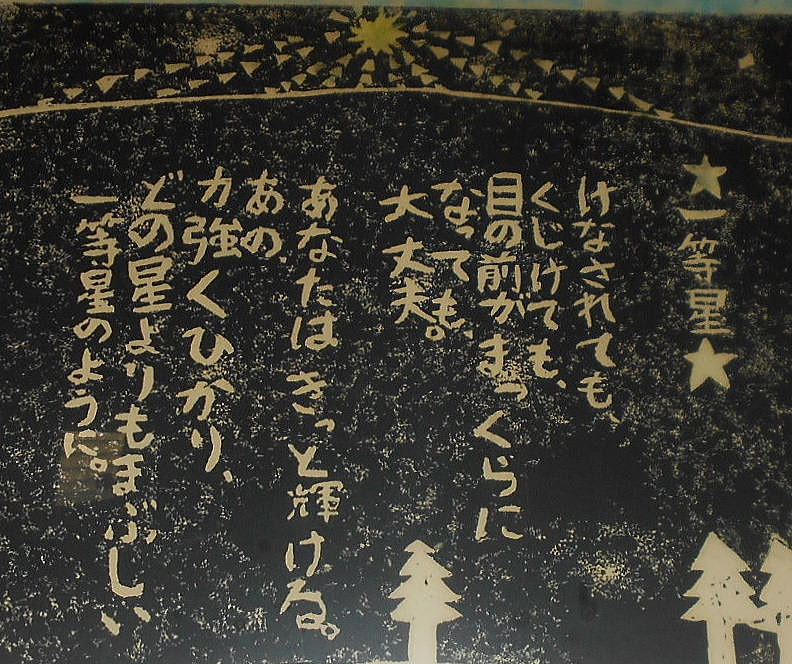 ★一等星★
けなされても、
くじけても、
目の前がまっくらに
なっても、
大丈夫。
あなたはきっと輝ける。
あの
力強くひかり、
どの星よりもまぶしい
一等星のように。